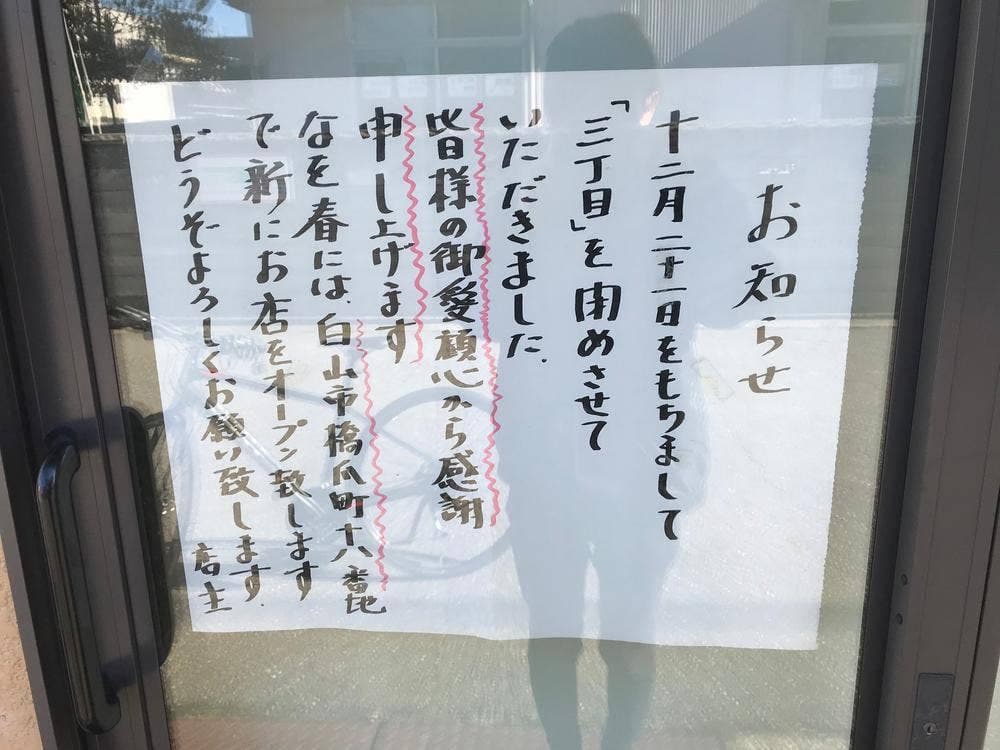 お知らせ
十二月二十一日をもちまして
「三丁目」を閉めさせて
いただきました.
皆様の御愛顧心から感謝
申し上げます
なを春には、白山市橋爪町十八番地
で新にお店をオープン致します
どうぞよろしくお願い致します.
店主